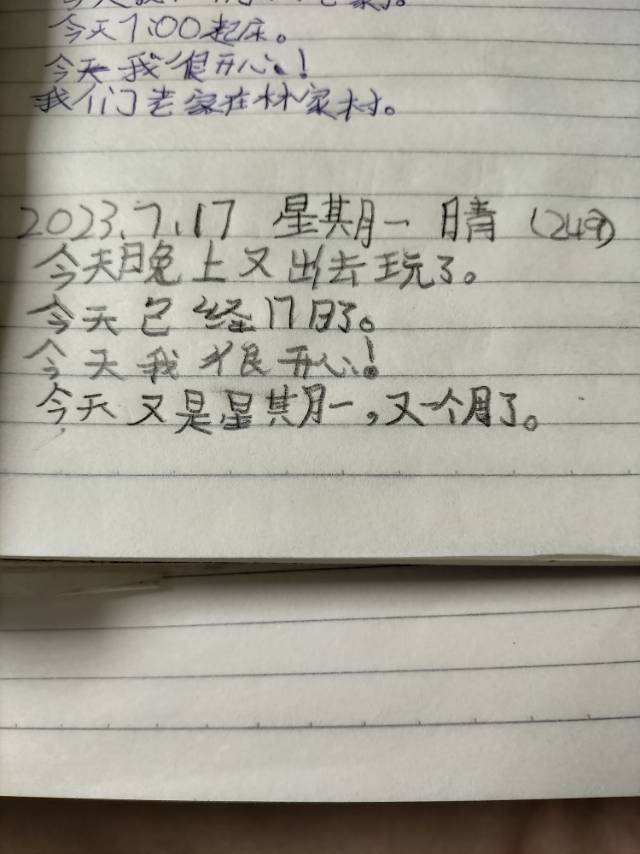 今天7:00起床。
今天我很开心!
我们老家在林家村。
2023.7.17 星期一 晴 (249)
今天晚上又出去玩了。
今天已经17日了。
今天我很开心!
今天又是星期一,又一个月了。